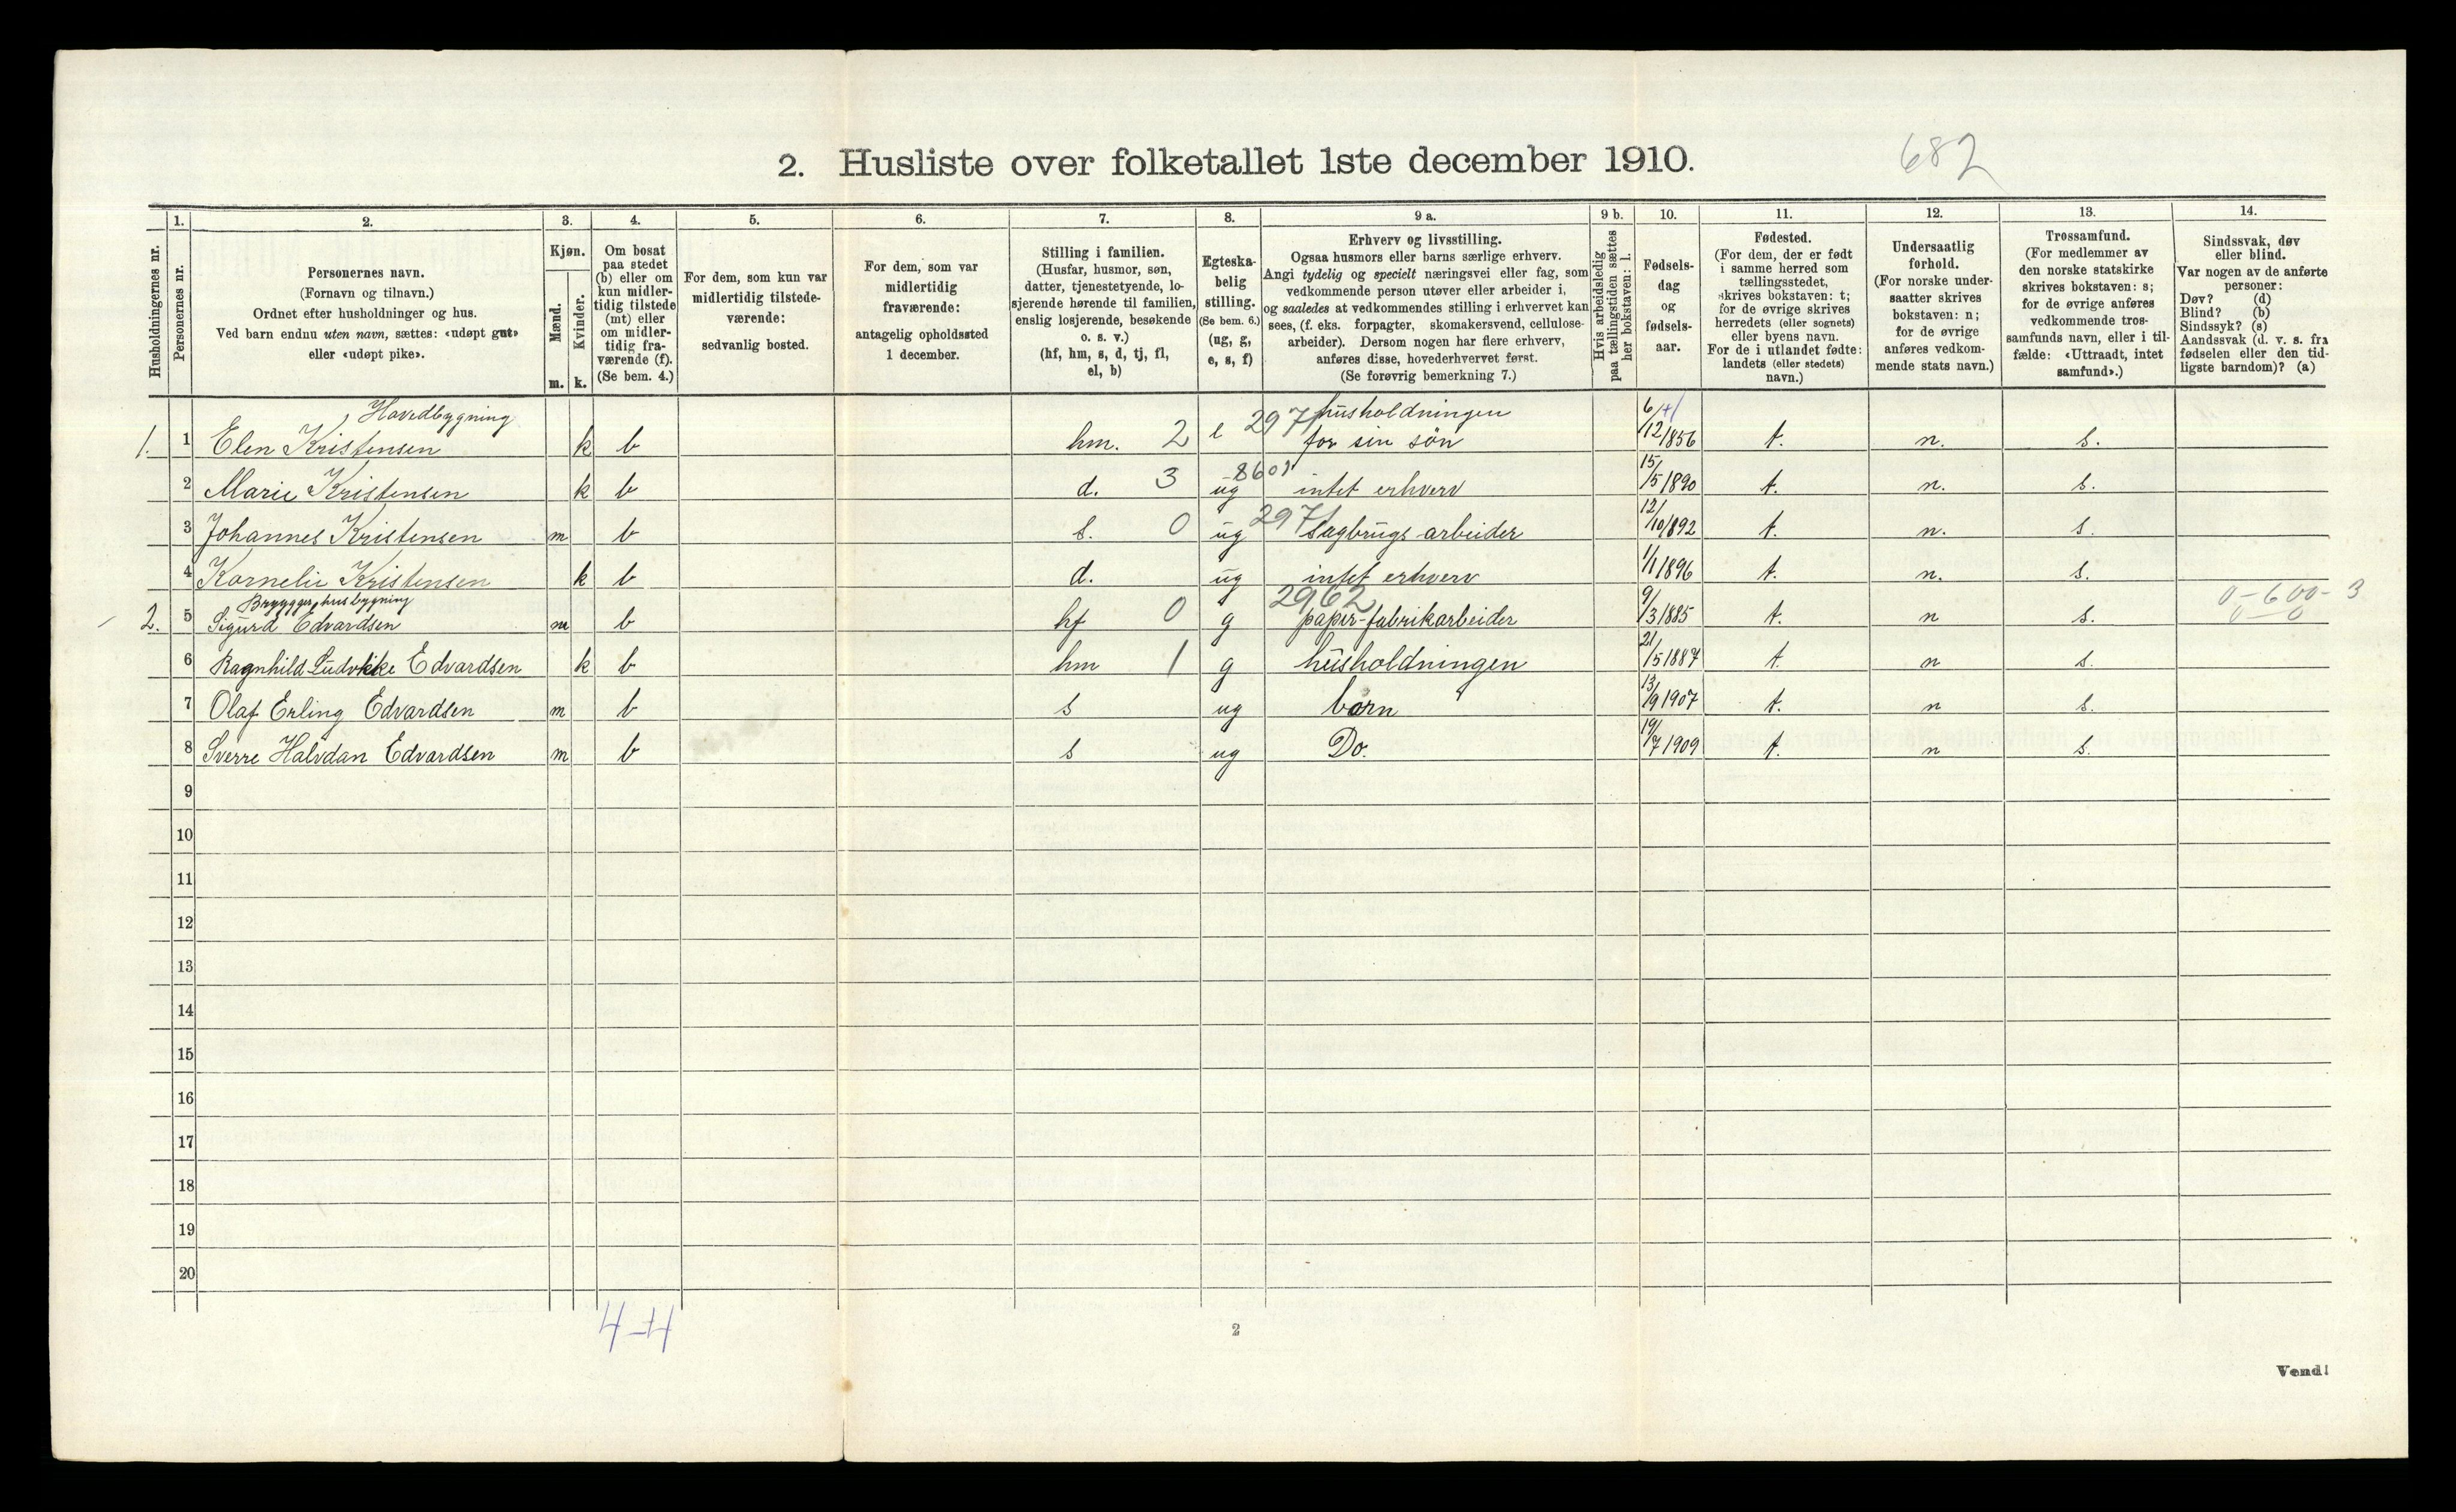 2. Husliste over folketallet 1ste december 1910.
682
Husholdningernes nr.
1.
Personernes nr.
2.
Personernes navn.
(Fornavn og tilnavn.)
Ordnet efter husholdninger og hus.
Ved barn endnu uten navn, sættes: «udøpt gut»
eller «udøpt pike».
3.
Kjøn.
Mænd.
Kvinder.
m. k.
4.
Om bosat
paa stedet
(b) eller om
kun midler-
tidig tilstede
(mt) eller
om midler-
tidig fra-
værende (f).
(Se bem. 4.)
5.
For dem, som kun var
midlertidig tilstede-
værende:
sedvanlig bosted.
6.
For dem, som var
midlertidig
fraværende:
antagelig opholdssted
1 december.
7.
Stilling i familien.
(Husfar, husmor, søn,
datter, tjenestetyende, lo-
sjerende hørende til familien,
enslig losjerende, besøkende
o. s. v.)
(hf, hm, s, d, tj, fl,
el, b)
8.
Egteska-
belig
stilling.
(Se bem. 6.)
(ug, g,
e, s, f)
9 a.
Erhverv og livsstilling.
Ogsaa husmors eller barns særlige erhverv.
Angi tydelig og specielt næringsvei eller fag, som
vedkommende person utøver eller arbeider i,
og saaledes at vedkommendes stilling i erhvervet kan
sees, (f. eks. forpagter, skomakersvend, cellulose-
arbeider). Dersom nogen har flere erhverv,
anføres disse, hovederhvervet først.
(Se forøvrig bemerkning 7.)
9 b.
Hvis arbeidsledig
paa tællingstiden sættes
her bokstaven: l.
10.
Fødsels-
dag
og
fødsels-
aar.
11.
Fødested.
(For dem, der er født
i samme herred som
tællingsstedet,
skrives bokstaven: t;
for de øvrige skrives
herredets (eller sognets)
eller byens navn.
For de i utlandet fødte:
landets (eller stedets)
navn.)
12.
Undersaatlig
forhold.
(For norske under-
saatter skrives
bokstaven: n;
for de øvrige
anføres vedkom-
mende stats navn.)
13.
Trossamfund.
(For medlemmer av
den norske statskirke
skrives bokstaven: s;
for de øvrige anføres
vedkommende tros-
samfunds navn, eller i til-
fælde: «Uttraadt, intet
samfund».)
14.
Sindssvak, døv
eller blind.
Var nogen av de anførte
personer:
Døv? (d)
Blind? (b)
Sindssyk? (s)
Aandssvak (d. v. s. fra
fødselen eller den tid-
ligste barndom)? (a)
Hovedbygning
1. 1 Elen Kristensen k b hm. 2 e 2971 husholdningen for sin søn 6/12 1856 t. n. s.
2 Marie Kristensen k b d. 3 ug 8601 intet erhverv 15/5 1890 t. n. s.
3 Johannes Kristensen m b s. 0 ug 2971 Sagbrugs arbeider 12/10 1892 t. n. s.
4 Kornelie Kristensen k b d. ug intet erhverv 1/1 1896 t. n. s.
Bryggerhusbygning
2. 5 Sigurd Edvardsen m b hf 0 g 2962 papir-fabrikarbeider 9/3 1885 t. n s. 0-600-3
0-0
6 Ragnhild Ludvikke Edvardsen k b hm 1 g husholdningen 21/5 1887 t. n s.
7 Olaf Erling Edvardsen m b s ug barn 13/9 1907 t. n s.
8 Sverre Halvdan Edvardsen m b s ug Do. 19/7 1909 t. n s.
9
10
11
12
13
14
15
16
17
18
19
20
4-4
2
Vend!